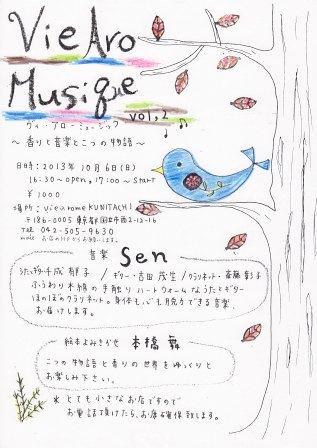 Vie Aro
Musique
vol,2
ヴィ・アロー・ミュージック
〜香りと音楽と二つの物語〜
日時:2013年10月6日(日)
16:30〜open,17:00〜Start
¥1000
場所:Viearome KUNITACHI
〒186-0005 東京都国立市西2-12-16
Tel 042-505-9630
お店のHPからお願いします。
音楽 Sen
うた・千成郁子/ギター・吉田茂生/クラリネット・斎藤彰子
ふうわり木綿の手触りハートウォームなうたとギター
ほのぼのクラリネット。身体も心も脱力できる音楽
お届けします。
絵本よみきかせ 本橋舞
二つの物語と香りの世界をゆっくりと
お楽しみ下さい。
*とても小さなお店ですので
お電話頂けたら、お席確保致します。